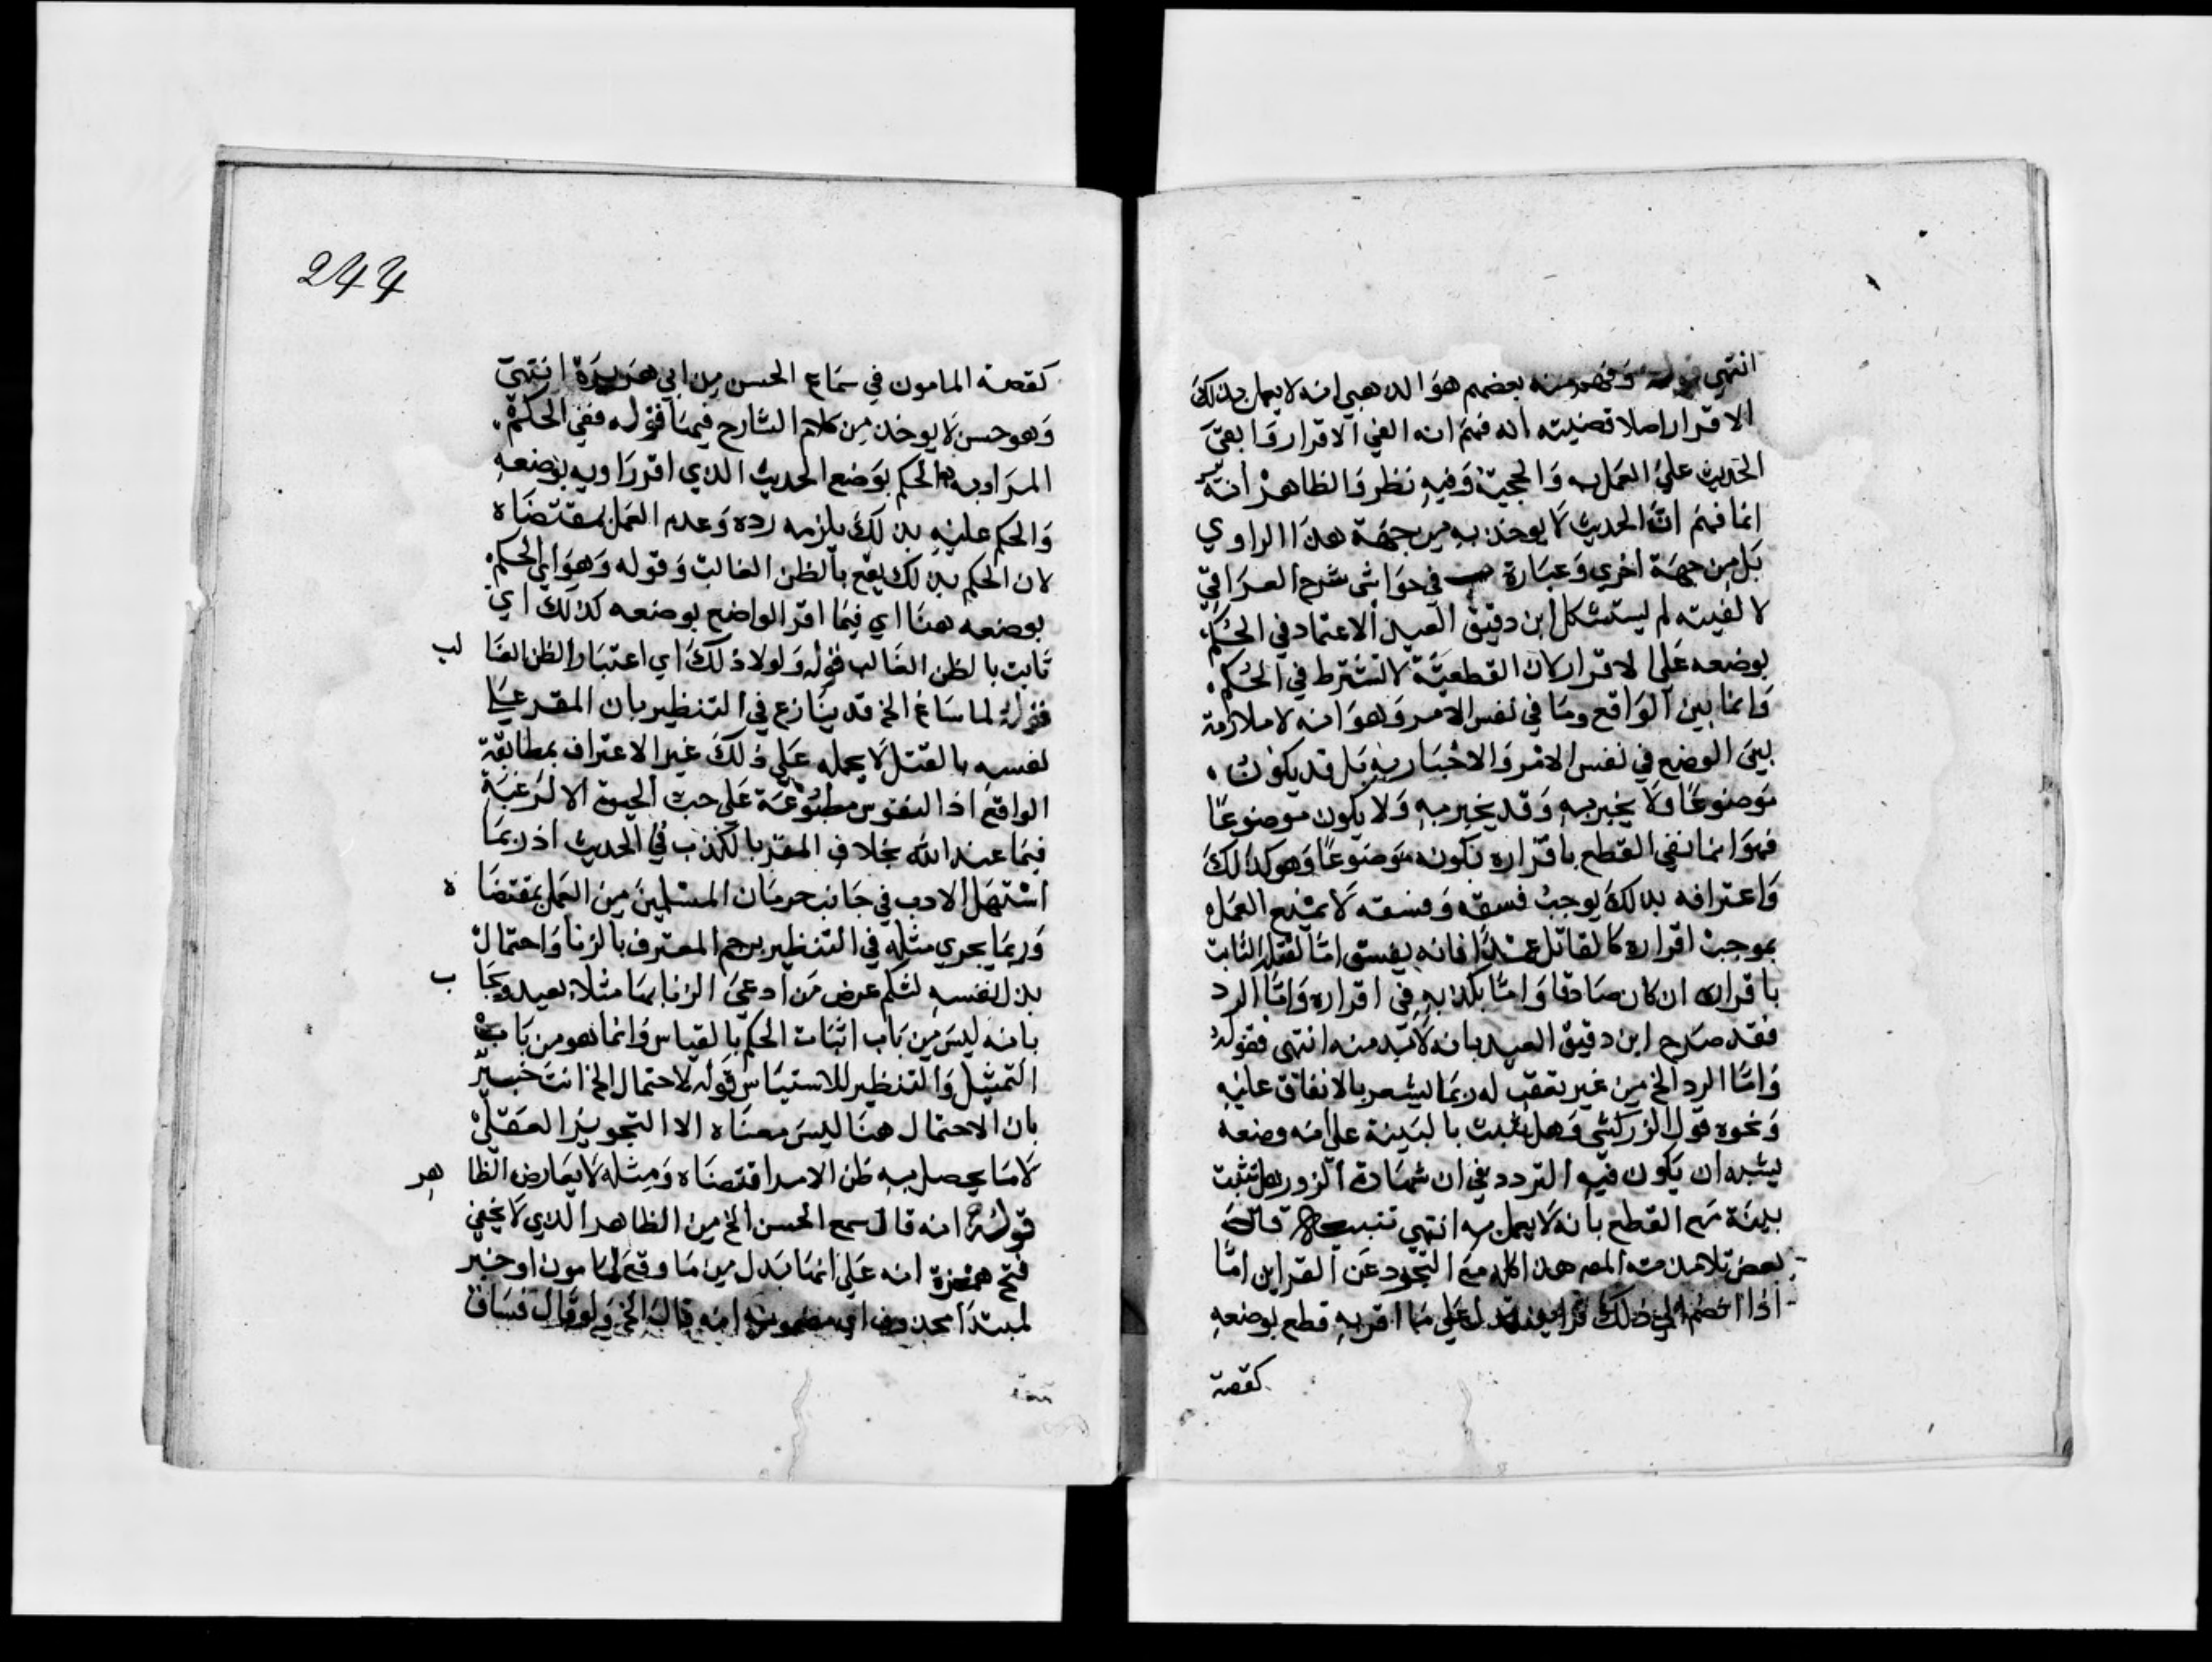 انتهي قوله وفهم منه بعضهم هو الذهبي انه لا يعمل بذلك
الاقرار اصلا قضيته انه فهم انه الغي الاقرار وابقي
الحديث علي العمل به والحجية وفيه نظر والظاهر انه
انما فهم ان الحديث لا يوخذ به من جهة هذا الراوي
بل من جهة اخري وعبارة في حواشي شرح العراقي
لالفيته لم يستشكل ابن دقيق العيد الاعتماد في الحكم
بوضعه علي الاقرار لان القطعية لا تشترط في الحكم
وانما بين الواقع وما في نفس الامر وهو انه لا ملازمة
بين الوضع في نفس الامر والاخبار به بل قد يكون
موضوعا ولا يخبر به وقد يخبر به ولا يكون موضوعا
فهو انما نفي القطع باقراره بكونه موضوعا وهو كذلك
واعترافه بذلك يوجب فسقه وفسقه لا يمنع العمل
بموجب اقراره كالقاتل عمدا فانه يفسق اما لقتله الثابت
باقراره ان كان صادقا واما بكذبه في اقراره واما الرد
فقد صرح ابن دقيق العيد بانه لا بد منه انتهي فقوله
واما الرد الخ من غير تعقب له ربما يشعر بالاتفاق عليه
ونحوه قول الزركشي وهل يثبت بالبينة علي انه وضعه
يشبه ان يكون فيه التردد في ان شهادة الزور هل تثبت
ببينة مع القطع بانه لا يعمل به انتهي تنبيه قال
بعض تلامذته المص هذا كله مع التجرد عن القراين اما
اذا انضم الي ذلك قراين تدل علي ما اقر به قطع بوضعه
كقصة
244
كقصة المامون في سماع الحسن من ابي هريرة انتهي
وهو حسن لا يوخذ من كلام الشارح فيما قوله ففي الحكم
المراد به الحكم بوضع الحديث الذي اقر راويه بوضعه
والحكم عليه بذلك يلزمه رده وعدم العمل بمقتضاه
لان الحكم بذلك يقع بالظن الغالب وقوله وهو اي الحكم
بوضعه هنا اي فيما اقر الواضع بوضعه كذلك اي
ثابت بالظن الغالب قوله ولولا ذلك اي اعتبار الظن الغا لب
قوله لما ساغ الخ قد ينازع في التنظير بان المقر علي
نفسه بالقتل لا يحمله علي ذلك غير الاعتراف بمطابقة
الواقع اذ النفوس مطبوعة علي حب الحيوة الا لرغبة
فيما عند الله بخلاف المقر بالكذب في الحديث اذ ربما
استهل الادب في جانب حرمان المسلمين من العمل بمقتضا ه
وربما يجري مثله في التنظير برجم المعترف بالزنا واحتمال
بذل نفسه لثلم عرض من ادعي الزنا بها مثلا بعيد ويجا ب
بانه ليس من باب اثبات الحكم بالقياس وانما هو من باب
التمثيل والتنظير للاستيناس قوله لاحتمال الخ انت خبير
بان الاحتمال هنا ليس معناه الا التجويز العقلي
لا ما يحصل به ظن الامر اقتضاه ومثله لا يعارض الظا هر
قوله انه قال سمع الحسن الخ من الظاهر الذي لا يخفي
فتح همزة انه علي انها بدل من ما وقع للمامون او خبر
لمبتدا محذوف اي انه قال الخ ولو قال فساق